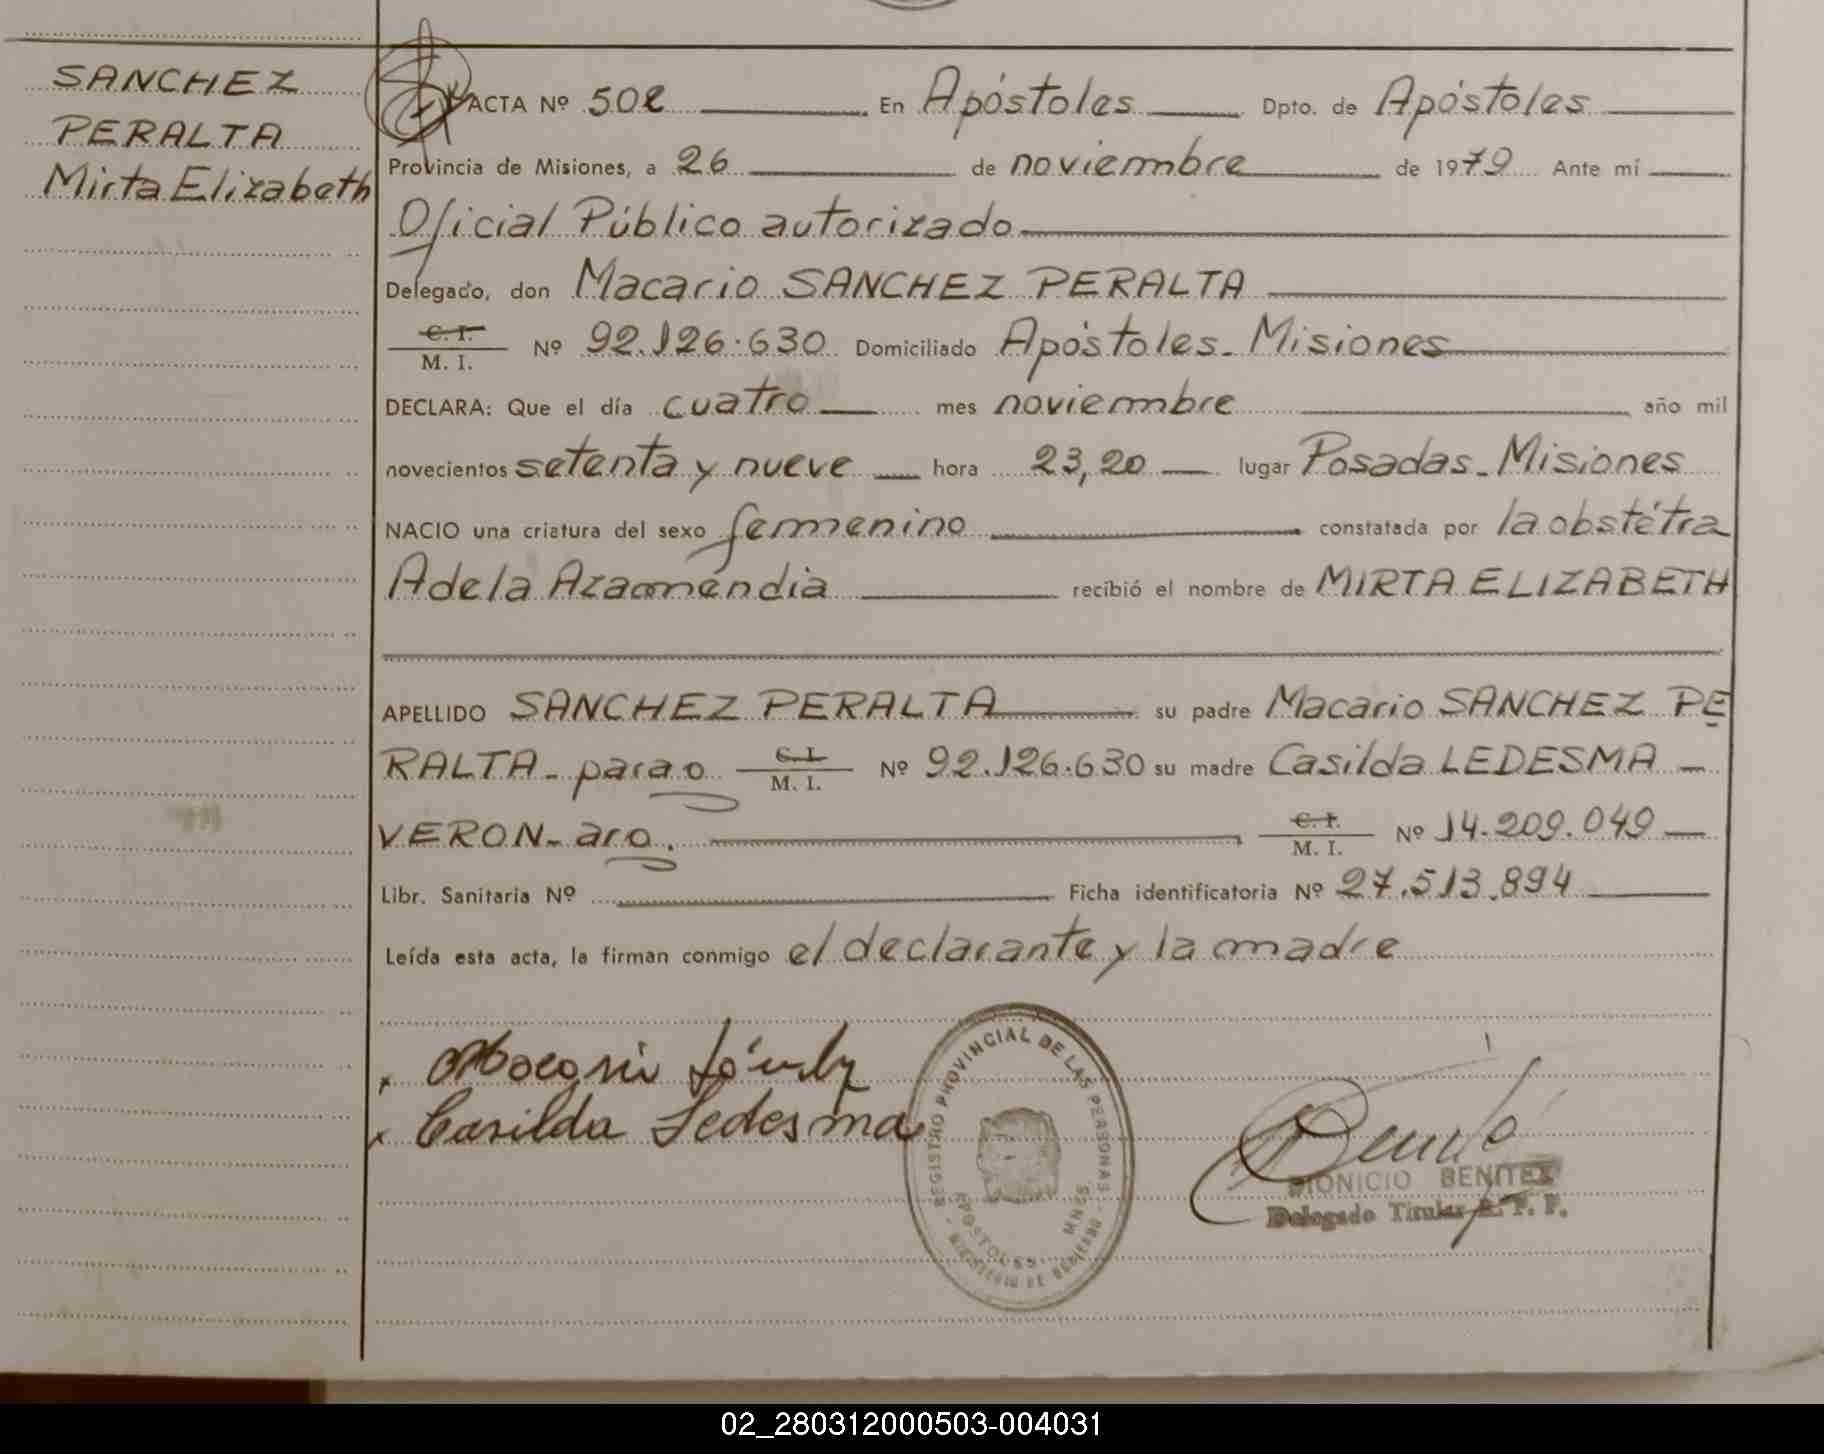 SANCHEZ
PERALTA
Mirta Elizabeth
ACTA Nº 502 En Apóstoles Dpto. de Apóstoles
Provincia de Misiones, a 26 de noviembre de 1979 Ante mí
Oficial Público autorizado
Delegado, don Macario SANCHEZ PERALTA
C. I.
M. I. Nº 92.126.630 Domiciliado Apóstoles - Misiones
DECLARA: Que el día cuatro mes noviembre año mil
novecientos setenta y nueve hora 23,20 lugar Posadas - Misiones
NACIO una criatura del sexo femenino constatada por la obstétra
Adela Azaméndia recibió el nombre de MIRTA ELIZABETH
APELLIDO SANCHEZ PERALTA su padre Macario SANCHEZ PE
RALTA - parao C. I.
M. I. Nº 92.126.630 su madre Casilda LEDESMA
VERON - aro. C. I.
M. I. Nº 14.209.049
Libr. Sanitaria Nº Ficha identificatoria Nº 27.513.894
Leída esta acta, la firman conmigo el declarante y la madre
Casilda Ledesma
REGISTRO PROVINCIAL DE LAS PERSONAS
APOSTOLES MNES
MINISTERIO DE GOBIERNO
DIONICIO BENITEZ
Delegado Titular R. P. P.
02_280312000503-004031